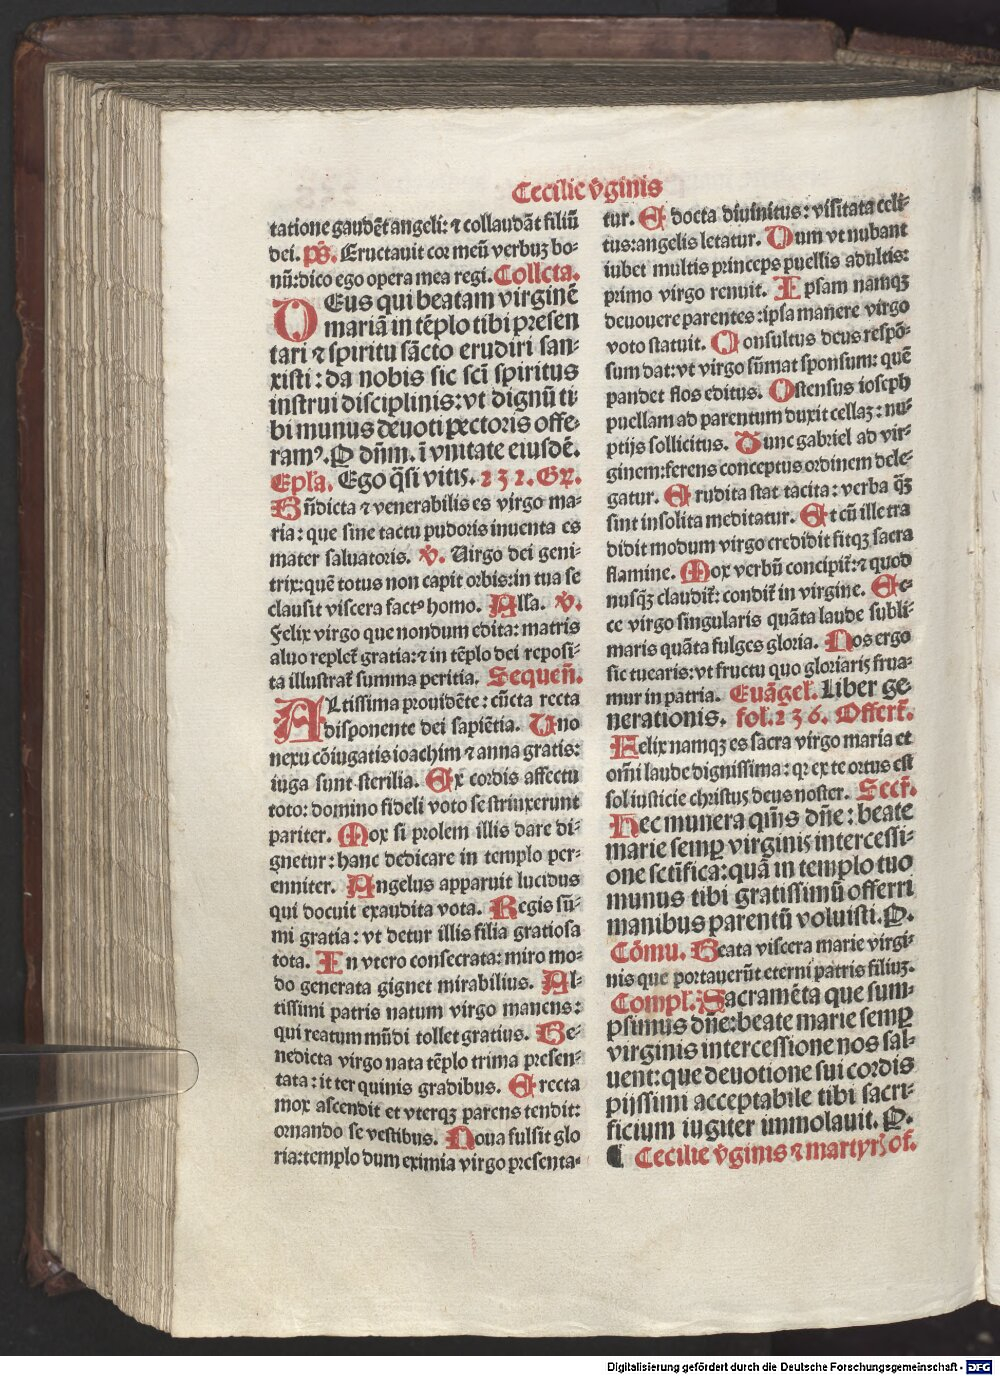 Cecilie v̄ginis
tatione gaudēt angeli: ⁊ collaudāt filiū
dei. p̄s. Eructauit cor meū verbuꝫ bo-
nū: dico ego opera mea regi. Collcta.
DEus qui beatam virginē
mariā in tēplo tibi presen
tari ⁊ spiritu sācto erudiri san-
xisti: da nobis sic scī spiritus
instrui disciplinis: vt dignū ti
bi munus deuoti pectoris offe-
ramꝰ. P dn̄m. ī vnitate eiusdē.
Epl̄a. Ego q̄si vitis. 231. Gr̄.
Bn̄dicta ⁊ venerabilis es virgo ma-
ria: que sine tactu pudoris inuenta es
mater saluatoris. v̄. Uirgo dei geni-
trix: quē totus non capit orbis: in tua se
clausit viscera factꝰ homo. Alla. v̄.
Felix virgo que nondum edita: matris
aluo replet̄ gratia: ⁊ in tēplo dei reposi-
ta illustrat̄ summa peritia. Sequen̄.
ALtissima prouidēte: cūcta recta
disponente dei sapiētia. Uno
nexu cōiugatis ioachim ⁊ anna gratis:
iuga sunt sterilia. Ex cordis affectu
toto: domino fideli voto se strinxerunt
pariter. Mox si prolem illis dare di-
gnetur: hanc dedicare in templo per-
enniter. Angelus apparuit lucidus
qui docuit exaudita vota. Regis sū-
mi gratia: vt detur illis filia gratiosa
tota. In vtero consecrata: miro mo-
do generata gignet mirabilius. Al-
tissimi patris natum virgo manens:
qui reatum mūdi tollet gratius. Be-
nedicta virgo nata tēplo trina presen-
tata: it ter quinis gradibus. Erecta
mox ascendit et vterqꝫ parens tendit:
ornando se vestibus. Noua fulsit glo
ria: templo dum eximia virgo presenta-
tur. Edocta diuinitus: visitata celi-
tus: angelis letatur. Dum vt nubant
iubet multis princeps puellis adultis:
primo virgo renuit. Ipsam namqꝫ
deuouere parentes: ipsa manere virgo
voto statuit. Consultus deus respō-
sum dat: vt virgo sūmat sponsum: quē
pandet flos editus. Ostensus ioseph
puellam ad parentum duxit cellaꝫ: nu-
ptijs sollicitus. Tunc gabriel ad vir-
ginem: ferens conceptus ordinem dele-
gatur. Erudita stat tacita: verba q̄ꝫ
sint insolita meditatur. Et cū ille tra
didit modum virgo credidit fitqꝫ sacra
flamine. Mox verbū concipit̄: ⁊ quod
nusq̄ꝫ claudit̄: condit̄ in virgine. Ec-
ce virgo singularis quāta laude subli-
maris quāta fulges gloria. Nos ergo
sic tuearis: vt fructu quo gloriaris frua-
mur in patria. Euāgel̄. Liber ge-
nerationis. fol. 236. Offert̄.
Felix namqꝫ es sacra virgo maria et
om̄i laude dignissima: qr ex te ortus est
sol iusticie christus deus noster. Secr̄.
Hec munera qm̄s dn̄e: beate
marie semꝑ virginis intercessi-
one sctīfica: quā in templo tuo
munus tibi gratissimū offerri
manibus parentū voluisti. P.
Cōmu. Beata viscera marie virgi-
nis que portauerūt eterni patris filiuꝫ.
Compl̄. Sacramēta que sum-
psimus dn̄e: beate marie semꝑ
virginis intercessione nos sal-
uent: que deuotione sui cordis
pijssimi acceptabile tibi sacri-
ficium iugiter immolauit. P.
¶ Cecilie v̄ginis ⁊ martyrꝫ of.
Digitalisierung gefördert durch die Deutsche Forschungsgemeinschaft - DFG